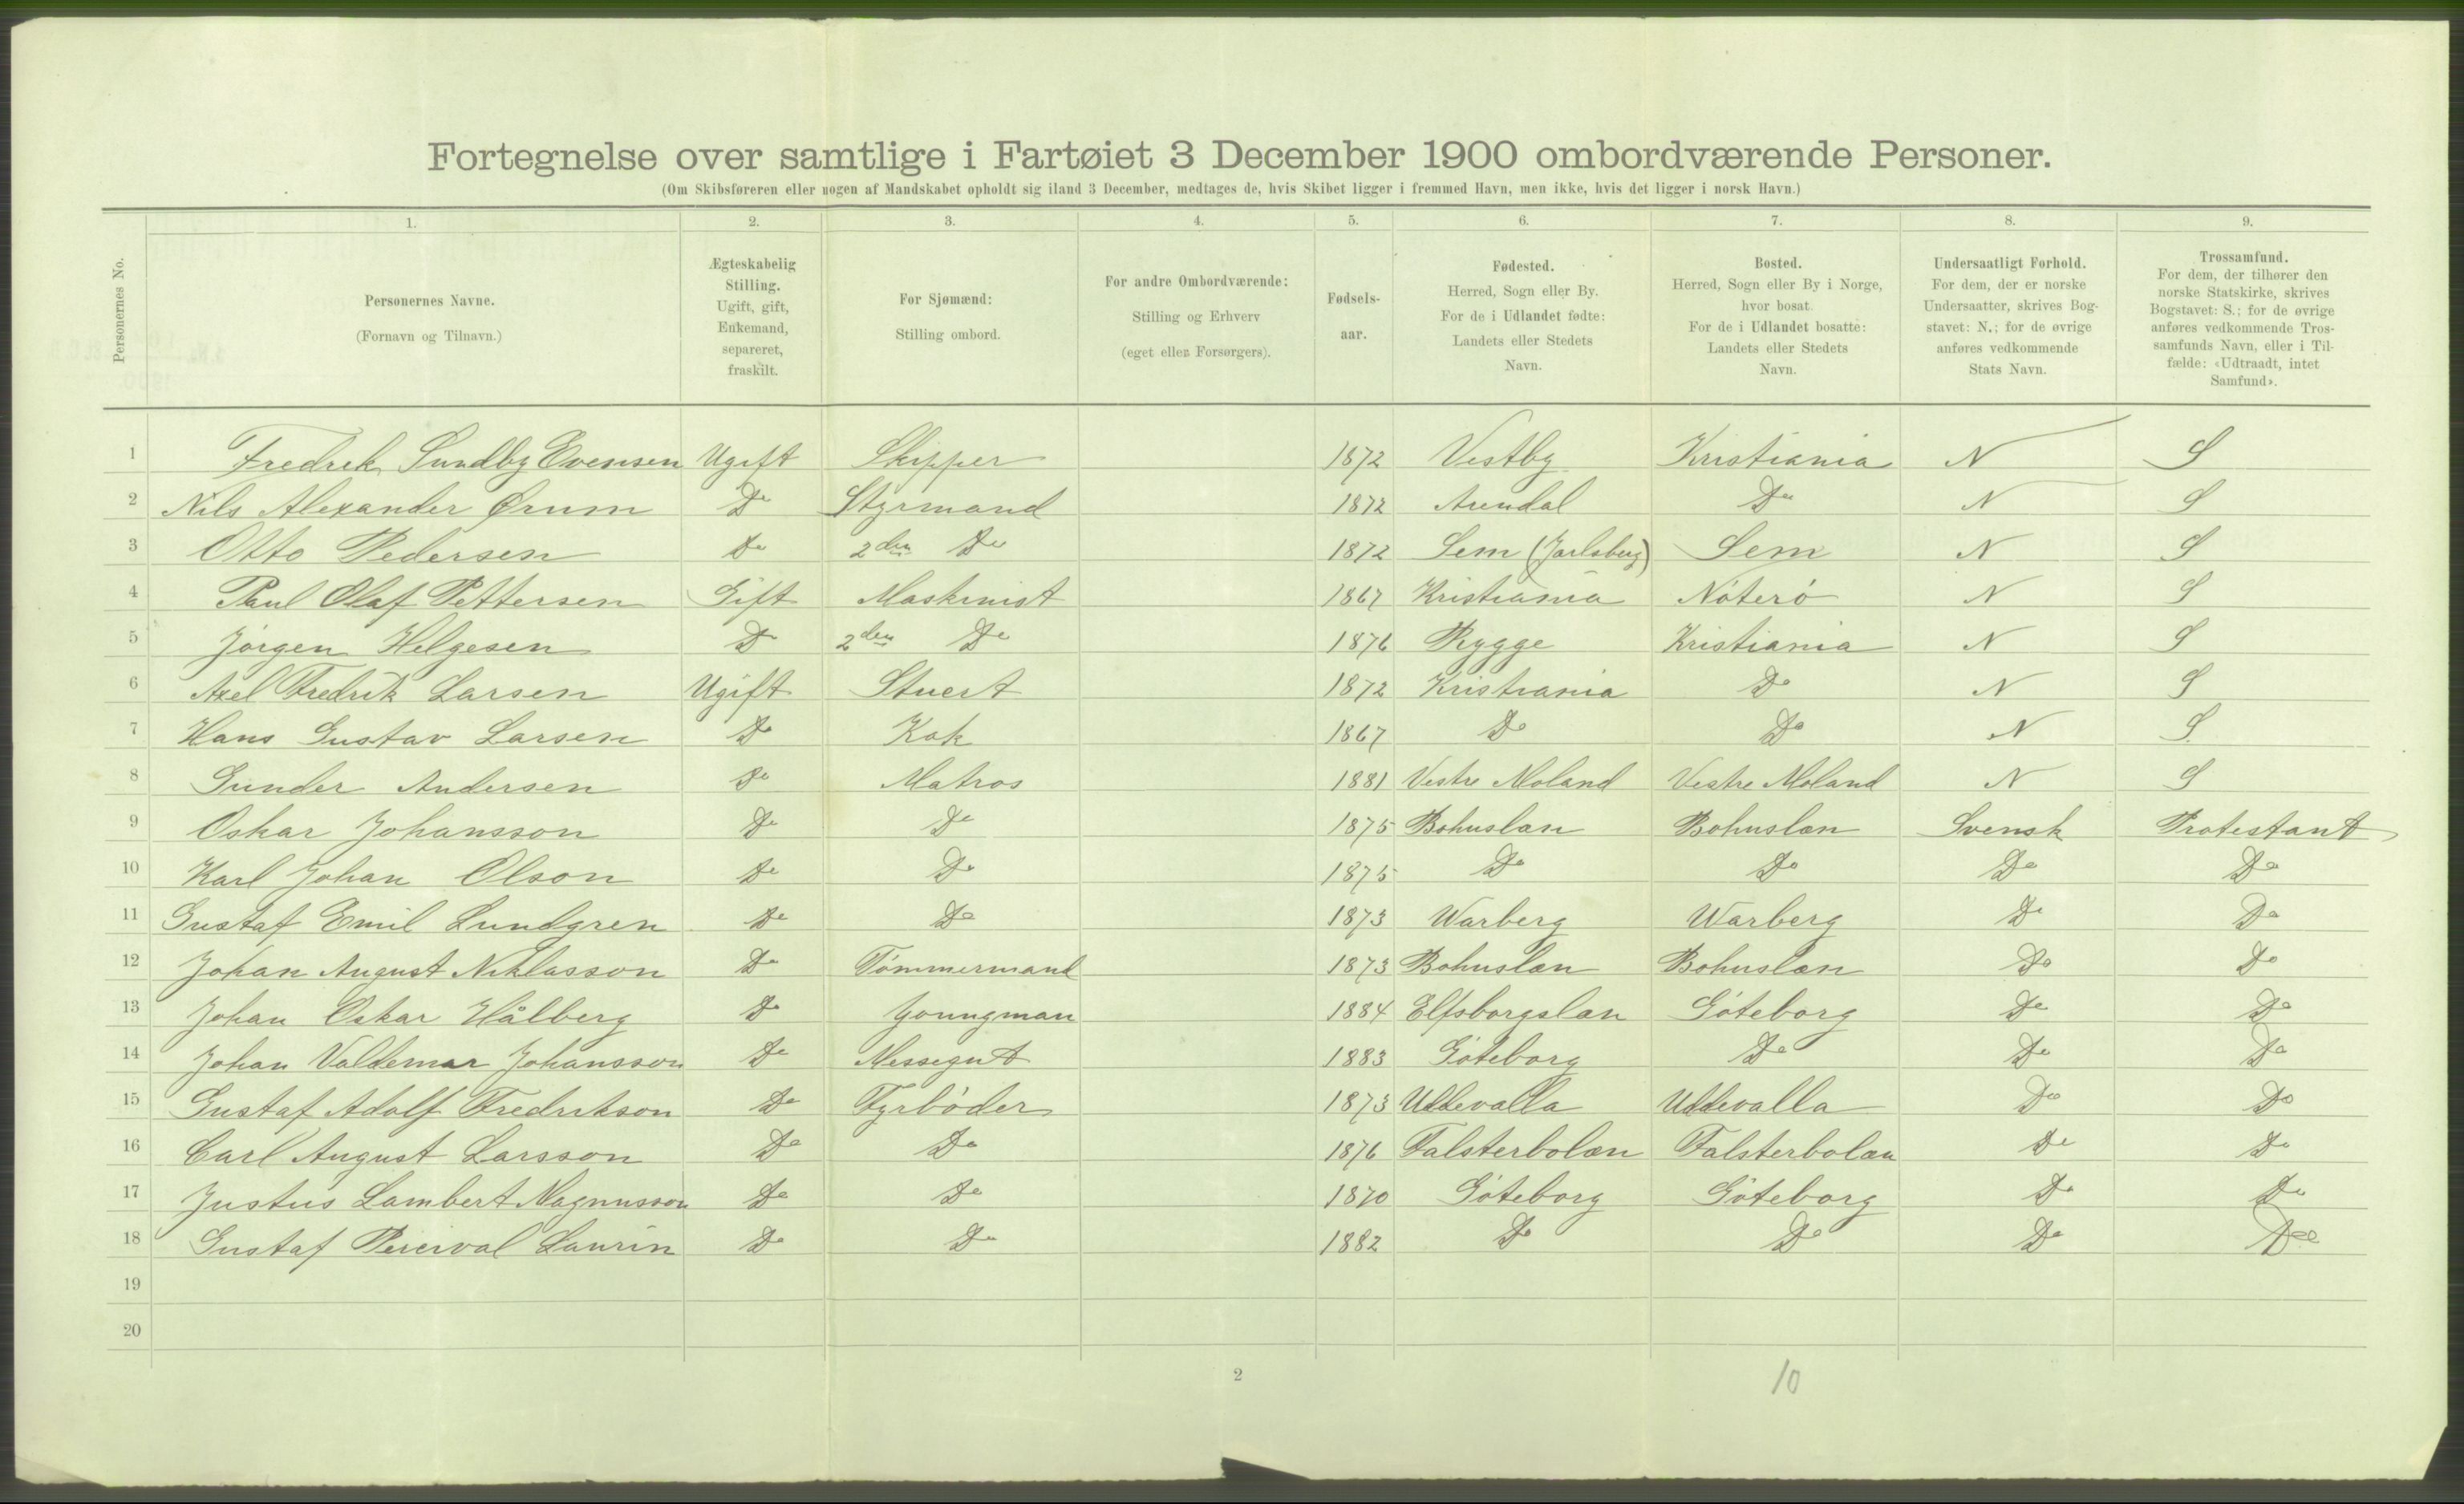 Fortegnelse over samtlige i Fartøiet 3 December 1900 ombordværende Personer.
(Om Skibsføreren eller nogen af Mandskabet opholdt sig iland 3 December, medtages de, hvis Skibet ligger i fremmed Havn, men ikke, hvis det ligger i norsk Havn.)
Personernes No.
1. 2. 3. 4. 5. 6. 7. 8. 9.
Personernes Navne.
(Fornavn og Tilnavn.)
Ægteskabelig
Stilling.
Ugift, gift,
Enkemand,
separeret,
fraskilt.
For Sjømænd:
Stilling ombord.
For andre Ombordværende:
Stilling og Erhverv
(eget eller Forsørgers).
Fødsels-
aar.
Fødested.
Herred, Sogn eller By.
For de i Udlandet fødte:
Landets eller Stedets
Navn.
Bosted.
Herred, Sogn eller By i Norge,
hvor bosat.
For de i Udlandet bosatte:
Landets eller Stedets
Navn.
Undersaatligt Forhold.
For dem, der er norske
Undersaatter, skrives Bog-
stavet: N.; for de øvrige
anføres vedkommende
Stats Navn.
Trossamfund.
For dem, der tilhører den
norske Statskirke, skrives
Bogstavet: S.; for de øvrige
anføres vedkommende Tros-
samfunds Navn, eller i Til-
fælde: «Udtraadt, intet
Samfund».
1 Fredrik Sundby Evensen Ugift Skipper 1872 Vestby Kristiania N S
2 Nils Alexander Ørum Do Styrmand 1872 Arendal Do N S
3 Otto Pedersen Do 2den Do 1872 Sem (Jarlsberg) Sem N S
4 Paul Olaf Pettersen Gift Maskinist 1867 Kristiania Nøterö N S
5 Jörgen Helgesen Do 2den Do 1876 Rygge Kristiania N S
6 Axel Fredrik Larsen Ugift Stuert 1872 Kristiania Do N S
7 Hans Gustav Larsen Do Kok 1867 Do Do N S.
8 Gunder Andersen Do Matros 1881 Vestre Moland Vestre Moland N S
9 Oskar Johansson Do Do 1875 Bohuslan Bohuslan Svensk Protestant
10 Karl Johan Olson Do Do 1875 Do Do Do Do
11 Gustaf Emil Lundgren Do Do 1873 Warberg Warberg Do Do
12 Johan August Niklasson Do Tömmermand 1873 Bohuslan Bohuslan Do Do
13 Johan Oskar Hålberg Do Youngman 1884 Elfsborgslan Göteborg Do Do
14 Johan Valdemar Johansson Do Messegut 1883 Göteborg Do Do Do
15 Gustaf Adolf Fredrikson Do Fyrböder 1873 Uddevalla Uddevalla Do Do
16 Carl August Larsson Do Do 1876 Falsterbolan Falsterbolan Do Do
17 Justus Lambert Magnusson Do Do 1870 Göteborg Göteborg Do Do
18 Gustaf Percival Laurin Do Do 1882 Do Do Do Do
19
20
2
10